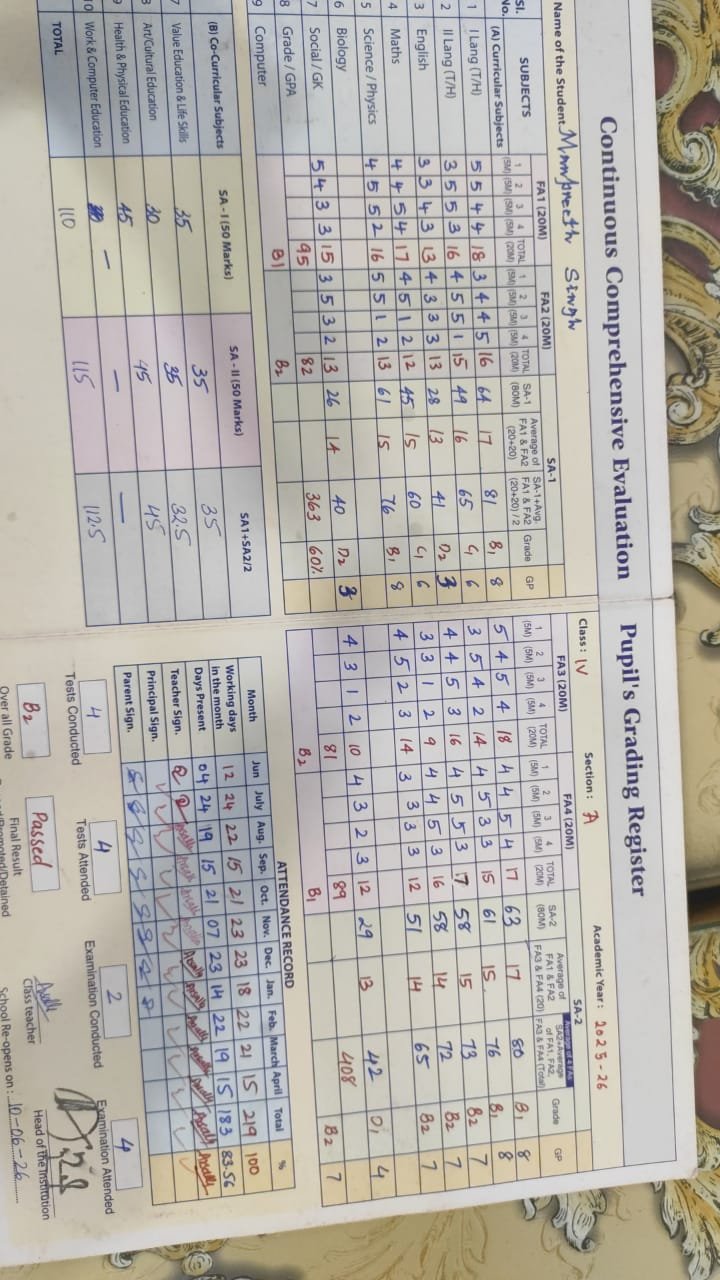 Continuous Comprehensive Evaluation
Name of the Student Mannpreeth Singh
Sl. No. SUBJECTS FA1 (20M) FA2 (20M) SA-1
1 (5M) 2 (5M) 3 (5M) 4 (5M) TOTAL (20M) 1 (5M) 2 (5M) 3 (5M) 4 (5M) TOTAL (20M) SA-1 (80M) Average of FA1 & FA2 (20+20) SA-1+Avg. FA1 & FA2 (20+20) / 2 Grade GP
(A) Curricular Subjects
1 I Lang (T/H) 5 5 4 4 18 3 4 4 5 16 64 17 81 B1 8
2 II Lang (T/H) 3 5 5 3 16 4 5 5 1 15 49 16 65 C1 6
3 English 3 3 4 3 13 4 3 3 3 13 28 13 41 D2 3
4 Maths 4 4 5 4 17 4 5 1 2 12 45 15 60 C1 6
5 Science / Physics 4 5 5 2 16 5 5 1 2 13 61 15 76 B1 8
6 Biology
7 Social / GK 5 4 3 3 15 3 5 3 2 13 26 14 40 D2 3
8 Grade / GPA 95 82 363 60%
9 Computer B1 B2
(B) Co-Curricular Subjects SA - I (50 Marks) SA - II (50 Marks) SA1+SA2/2
7 Value Education & Life Skills 35 35 35
8 Art/Cultural Education 30 35 32.5
9 Health & Physical Education 45 45 45
10 Work & Computer Education - - -
TOTAL 110 115 112.5
Pupil's Grading Register
Class : IV Section : A Academic Year : 2025-26
FA3 (20M) FA4 (20M) SA-2
1 (5M) 2 (5M) 3 (5M) 4 (5M) TOTAL (20M) 1 (5M) 2 (5M) 3 (5M) 4 (5M) TOTAL (20M) SA-2 (80M) Average of FA1 & FA2 FA3 & FA4 (20) Average of 4 FAs SA2+Average of FA1, FA2, FA3 & FA4 (Total) Grade GP
5 4 5 4 18 4 4 5 4 17 63 17 80 B1 8
3 5 4 2 14 4 5 3 3 15 61 15 76 B1 8
4 4 5 3 16 4 5 5 3 17 58 15 73 B2 7
3 3 1 2 9 4 4 5 3 16 58 14 72 B2 7
4 5 2 3 14 3 3 3 3 12 51 14 65 B2 7
4 3 1 2 10 4 3 2 3 12 29 13 42 D1 4
81 89 408 B2 7
B2 B1
ATTENDANCE RECORD
Month Jun July Aug. Sep. Oct. Nov. Dec. Jan. Feb. March April Total %
Working days in the month 12 24 22 15 21 23 23 18 22 21 15 219 100
Days Present 04 24 19 15 21 07 23 14 22 19 15 183 83.56
Teacher Sign.
Principal Sign.
Parent Sign.
4 4 2 4
Tests Conducted Tests Attended Examination Conducted Examination Attended
B2 Passed
Over all Grade Final Result Class teacher Head of the Institution
Promoted/Detained School Re-opens on : 10-06-26